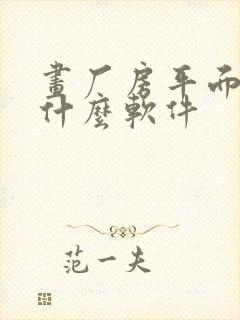 畫廠房平面
什麼軟件
范一夫